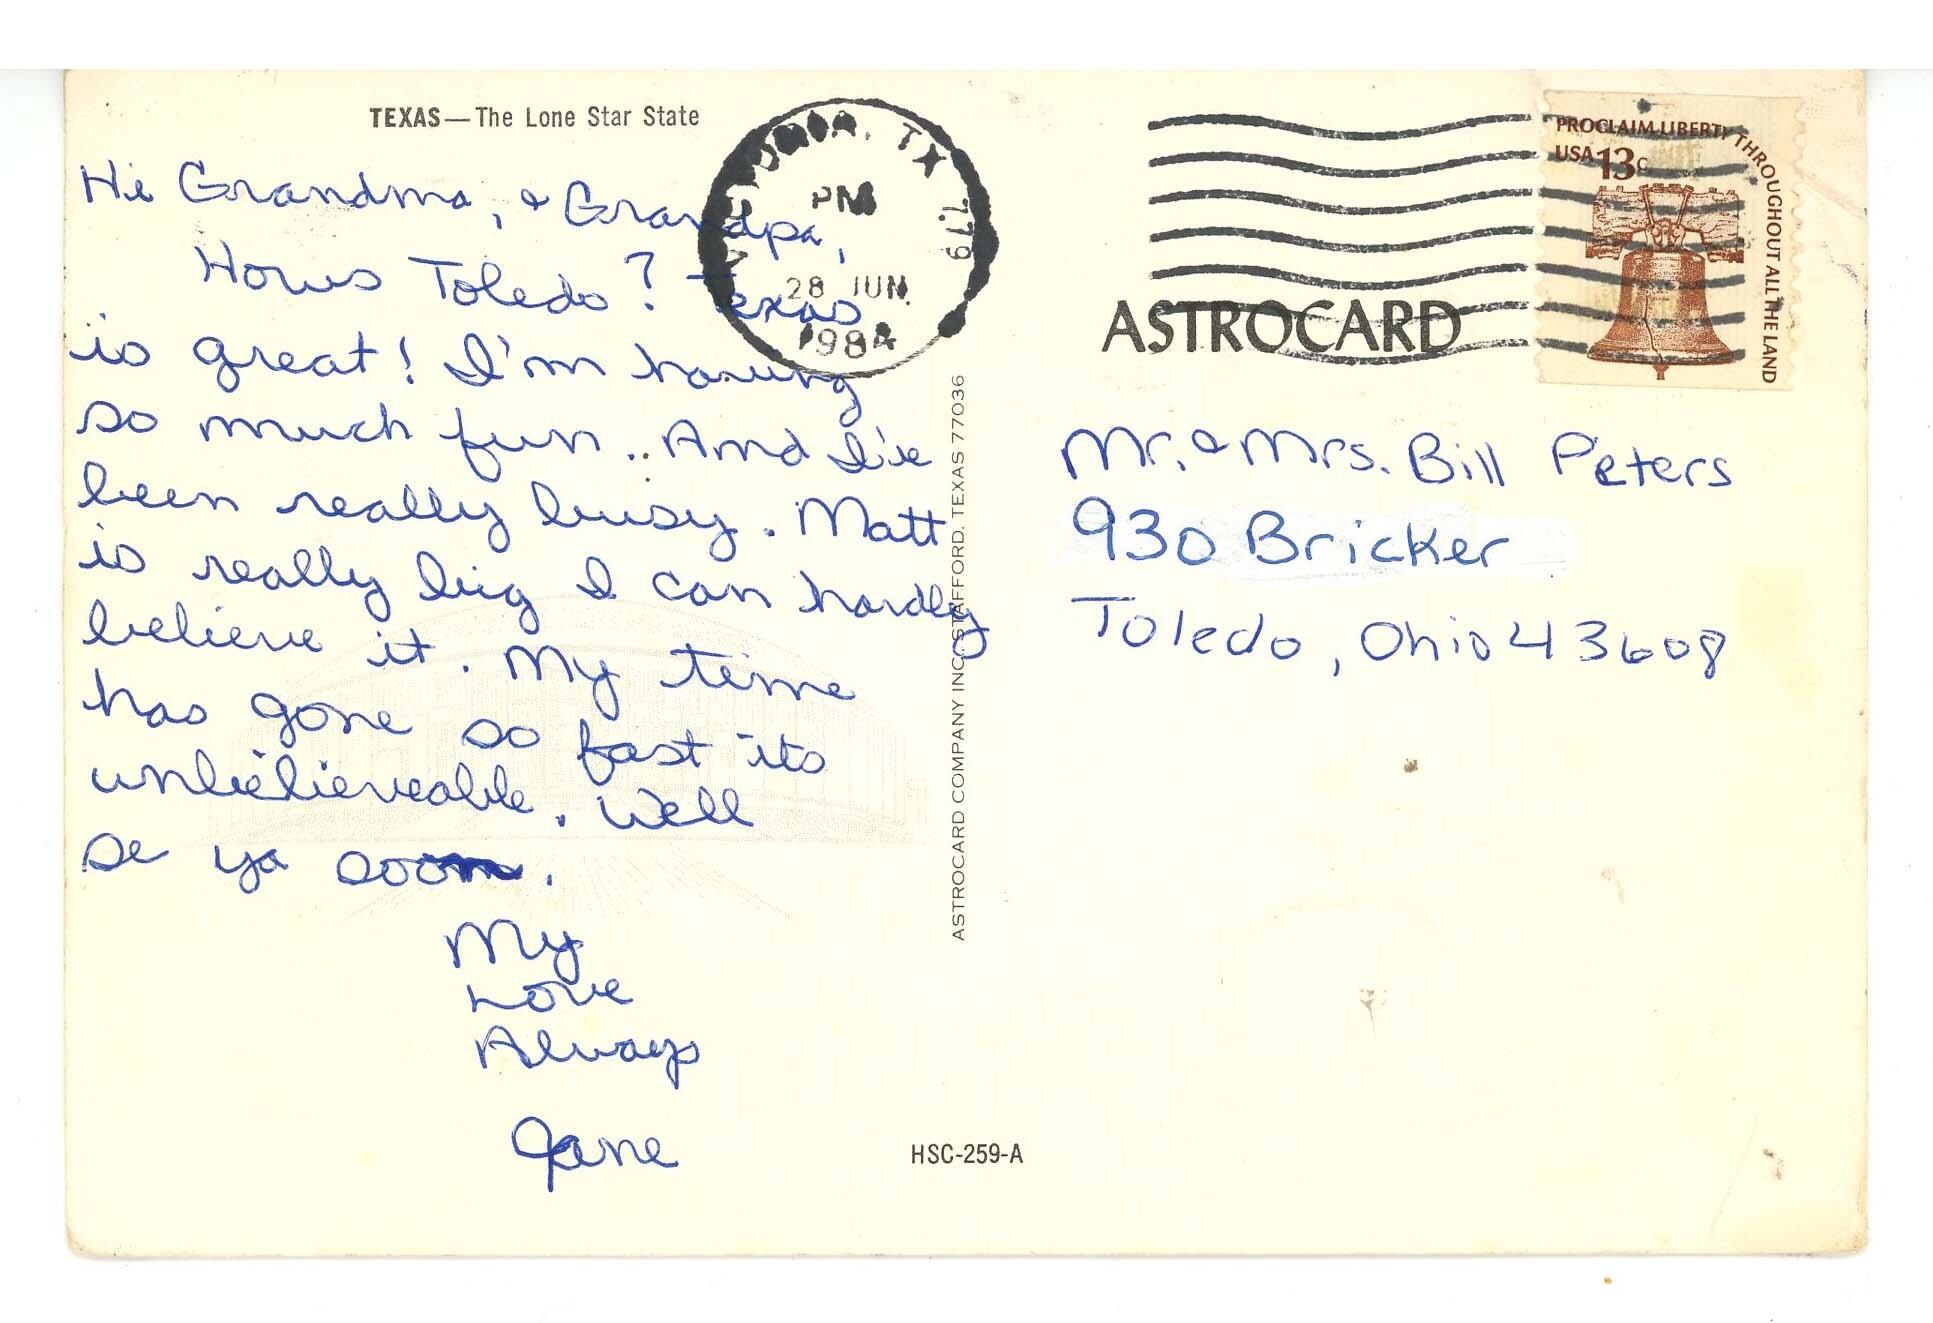 TEXAS—The Lone Star State
Hi Grandma, & Grandpa,
Hows Toledo? Texas
is great! I'm having
so much fun.. And I've
been really busy. Matt
is really big I can hardly
believe it. My time
has gone so fast its
unbelieveable. Well
se ya soon.
My
Love
Always
Jane
VICTORIA, TX 779
PM
28 JUN
1984
ASTROCARD COMPANY INC. STAFFORD, TEXAS 77036
HSC-259-A
PROCLAIM LIBERTY THROUGHOUT ALL THE LAND
USA 13c
ASTROCARD
Mr. & Mrs. Bill Peters
930 Bricker
Toledo, Ohio 43608